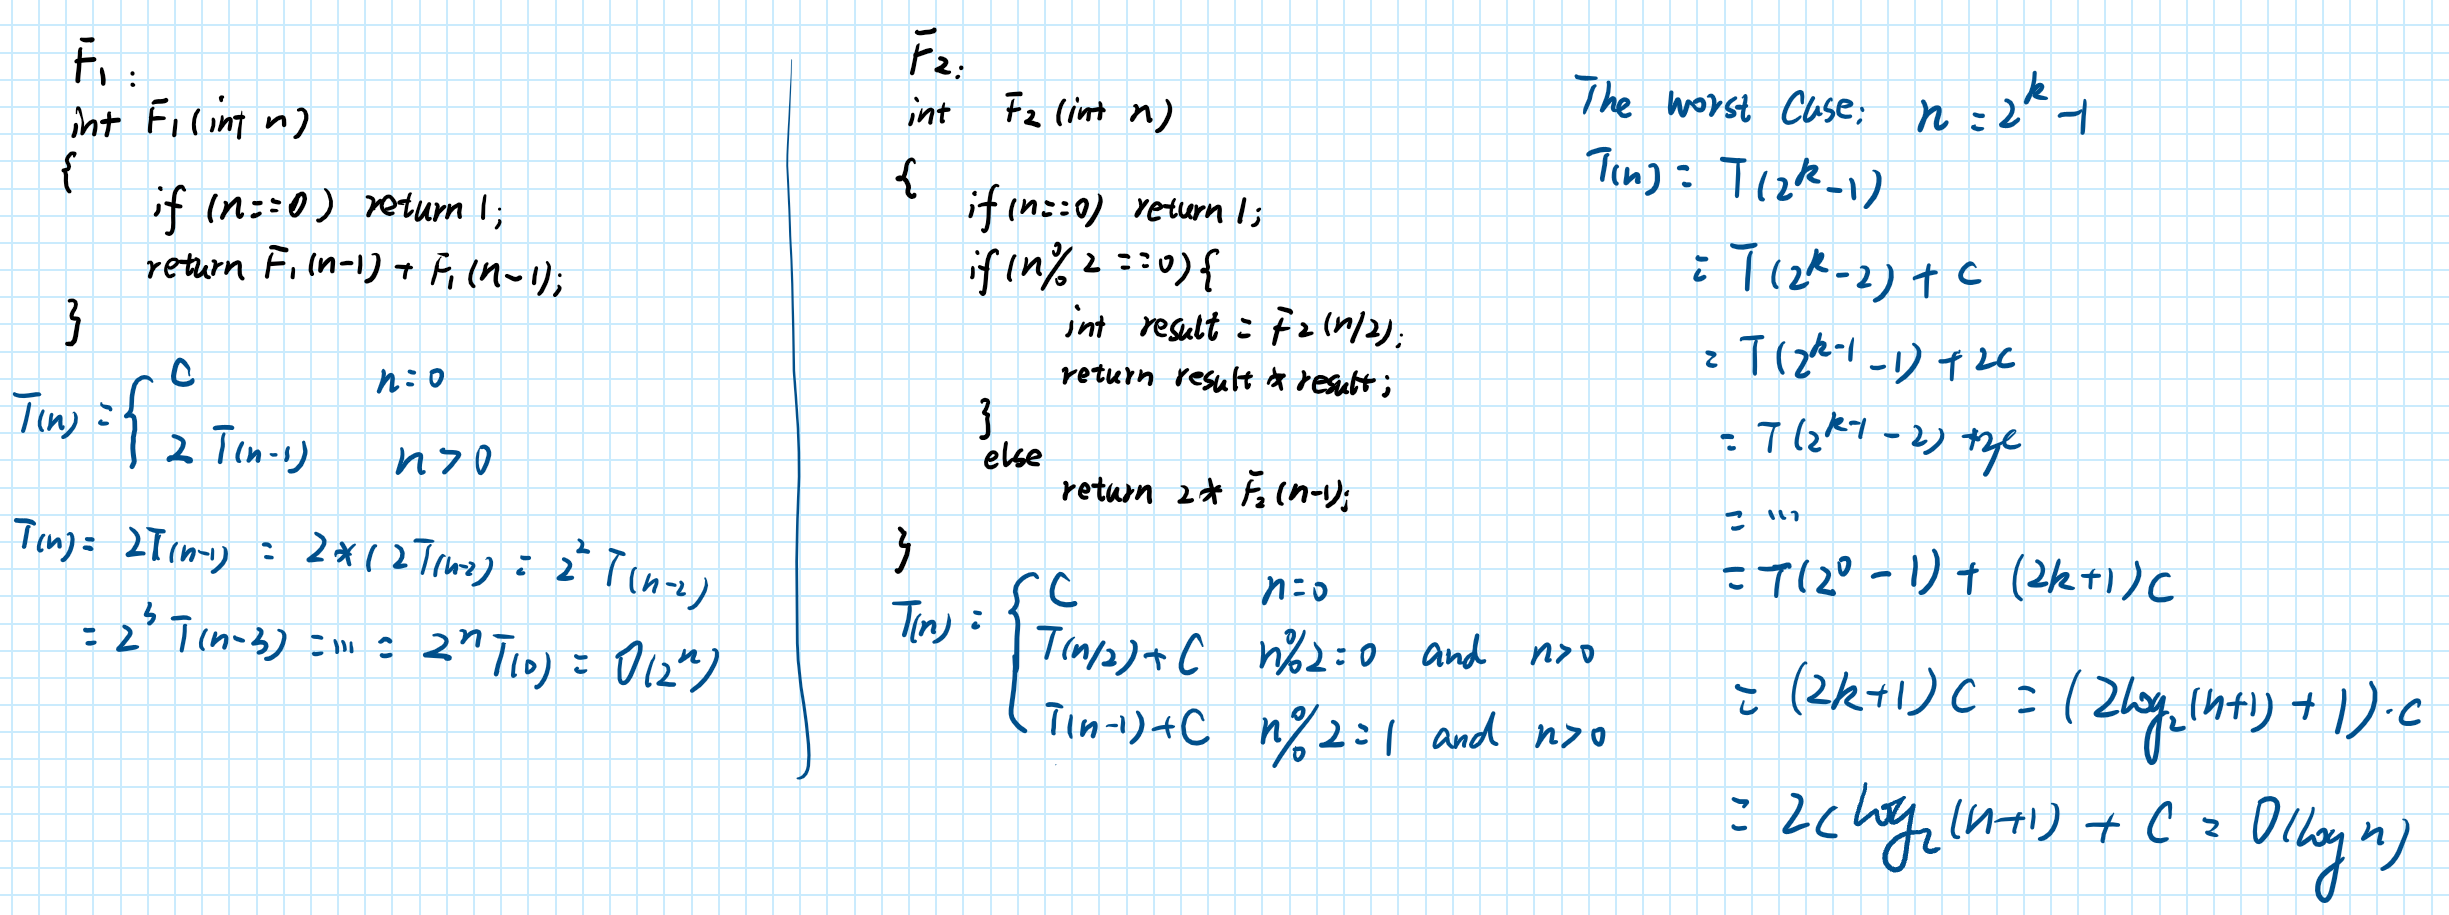 F₁:
int F₁(int n)
{
if (n==0) return 1;
return F₁(n-1) + F₁(n-1);
}
T(n) = { C n=0
2T(n-1) n>0
T(n) = 2T(n-1) = 2*(2T(n-2) = 2² T(n-2)
= 2³ T(n-3) = ... = 2ⁿ T(0) = O(2ⁿ)
F2:
int F2(int n)
{
if (n==0) return 1;
if (n%2==0){
int result = F2(n/2);
return result * result;
}
else
return 2* F₂(n-1);
}
T(n) = { C n=0
T(n/2)+C n%2=0 and n>0
T(n-1)+C n%2=1 and n>0
The worst Case: n = 2^k -1
T(n) = T(2^k -1)
= T(2^k -2) + C
= T(2^(k-1) -1) + 2C
= T(2^(k-1) -2) +
= ...
= T(2⁰ -1) + (2k+1)C
= (2k+1)C = (2log₂(n+1) + 1)·C
= 2C log₂(n+1) + C = O(log n)